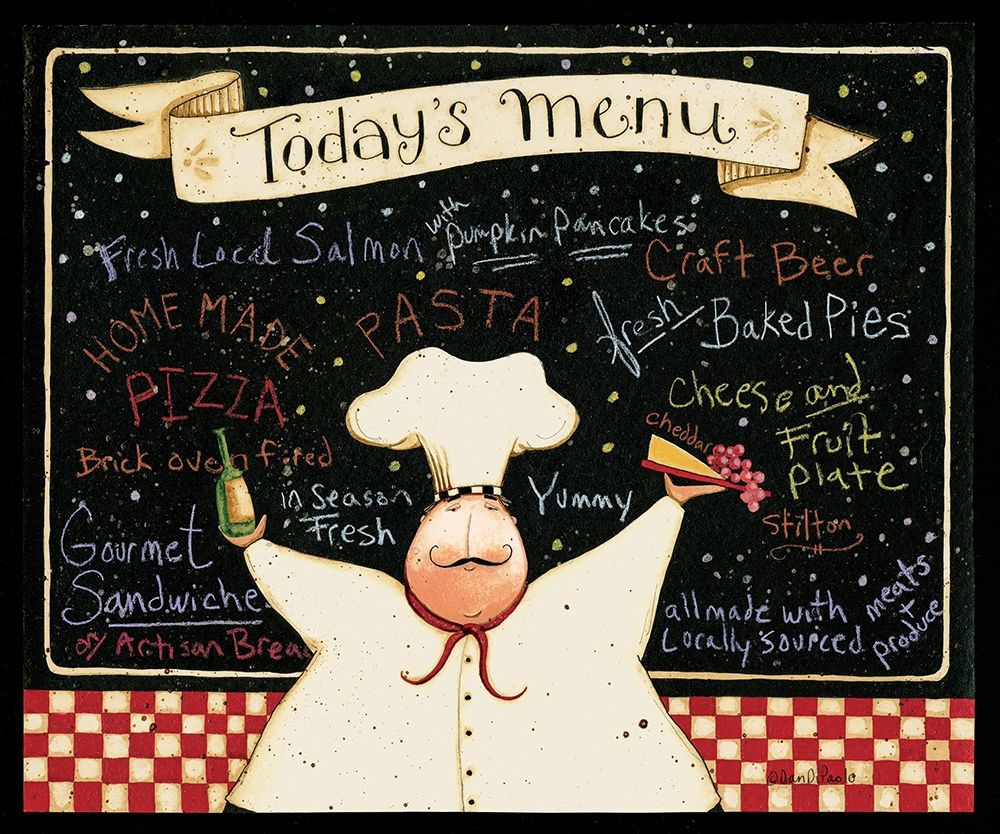 Today's menu
Fresh Local Salmon with Pumpkin Pancakes
Craft Beer
HOME MADE
PIZZA
Brick oven fired
PASTA
fresh Baked Pies
cheese and
Fruit
plate
cheddar
Stilton
in Season
Fresh
Yummy
Gourmet
Sandwiche
on Artisan Brea
all made with
Locally sourced
meats
+
produce
©Dan DiPaolo